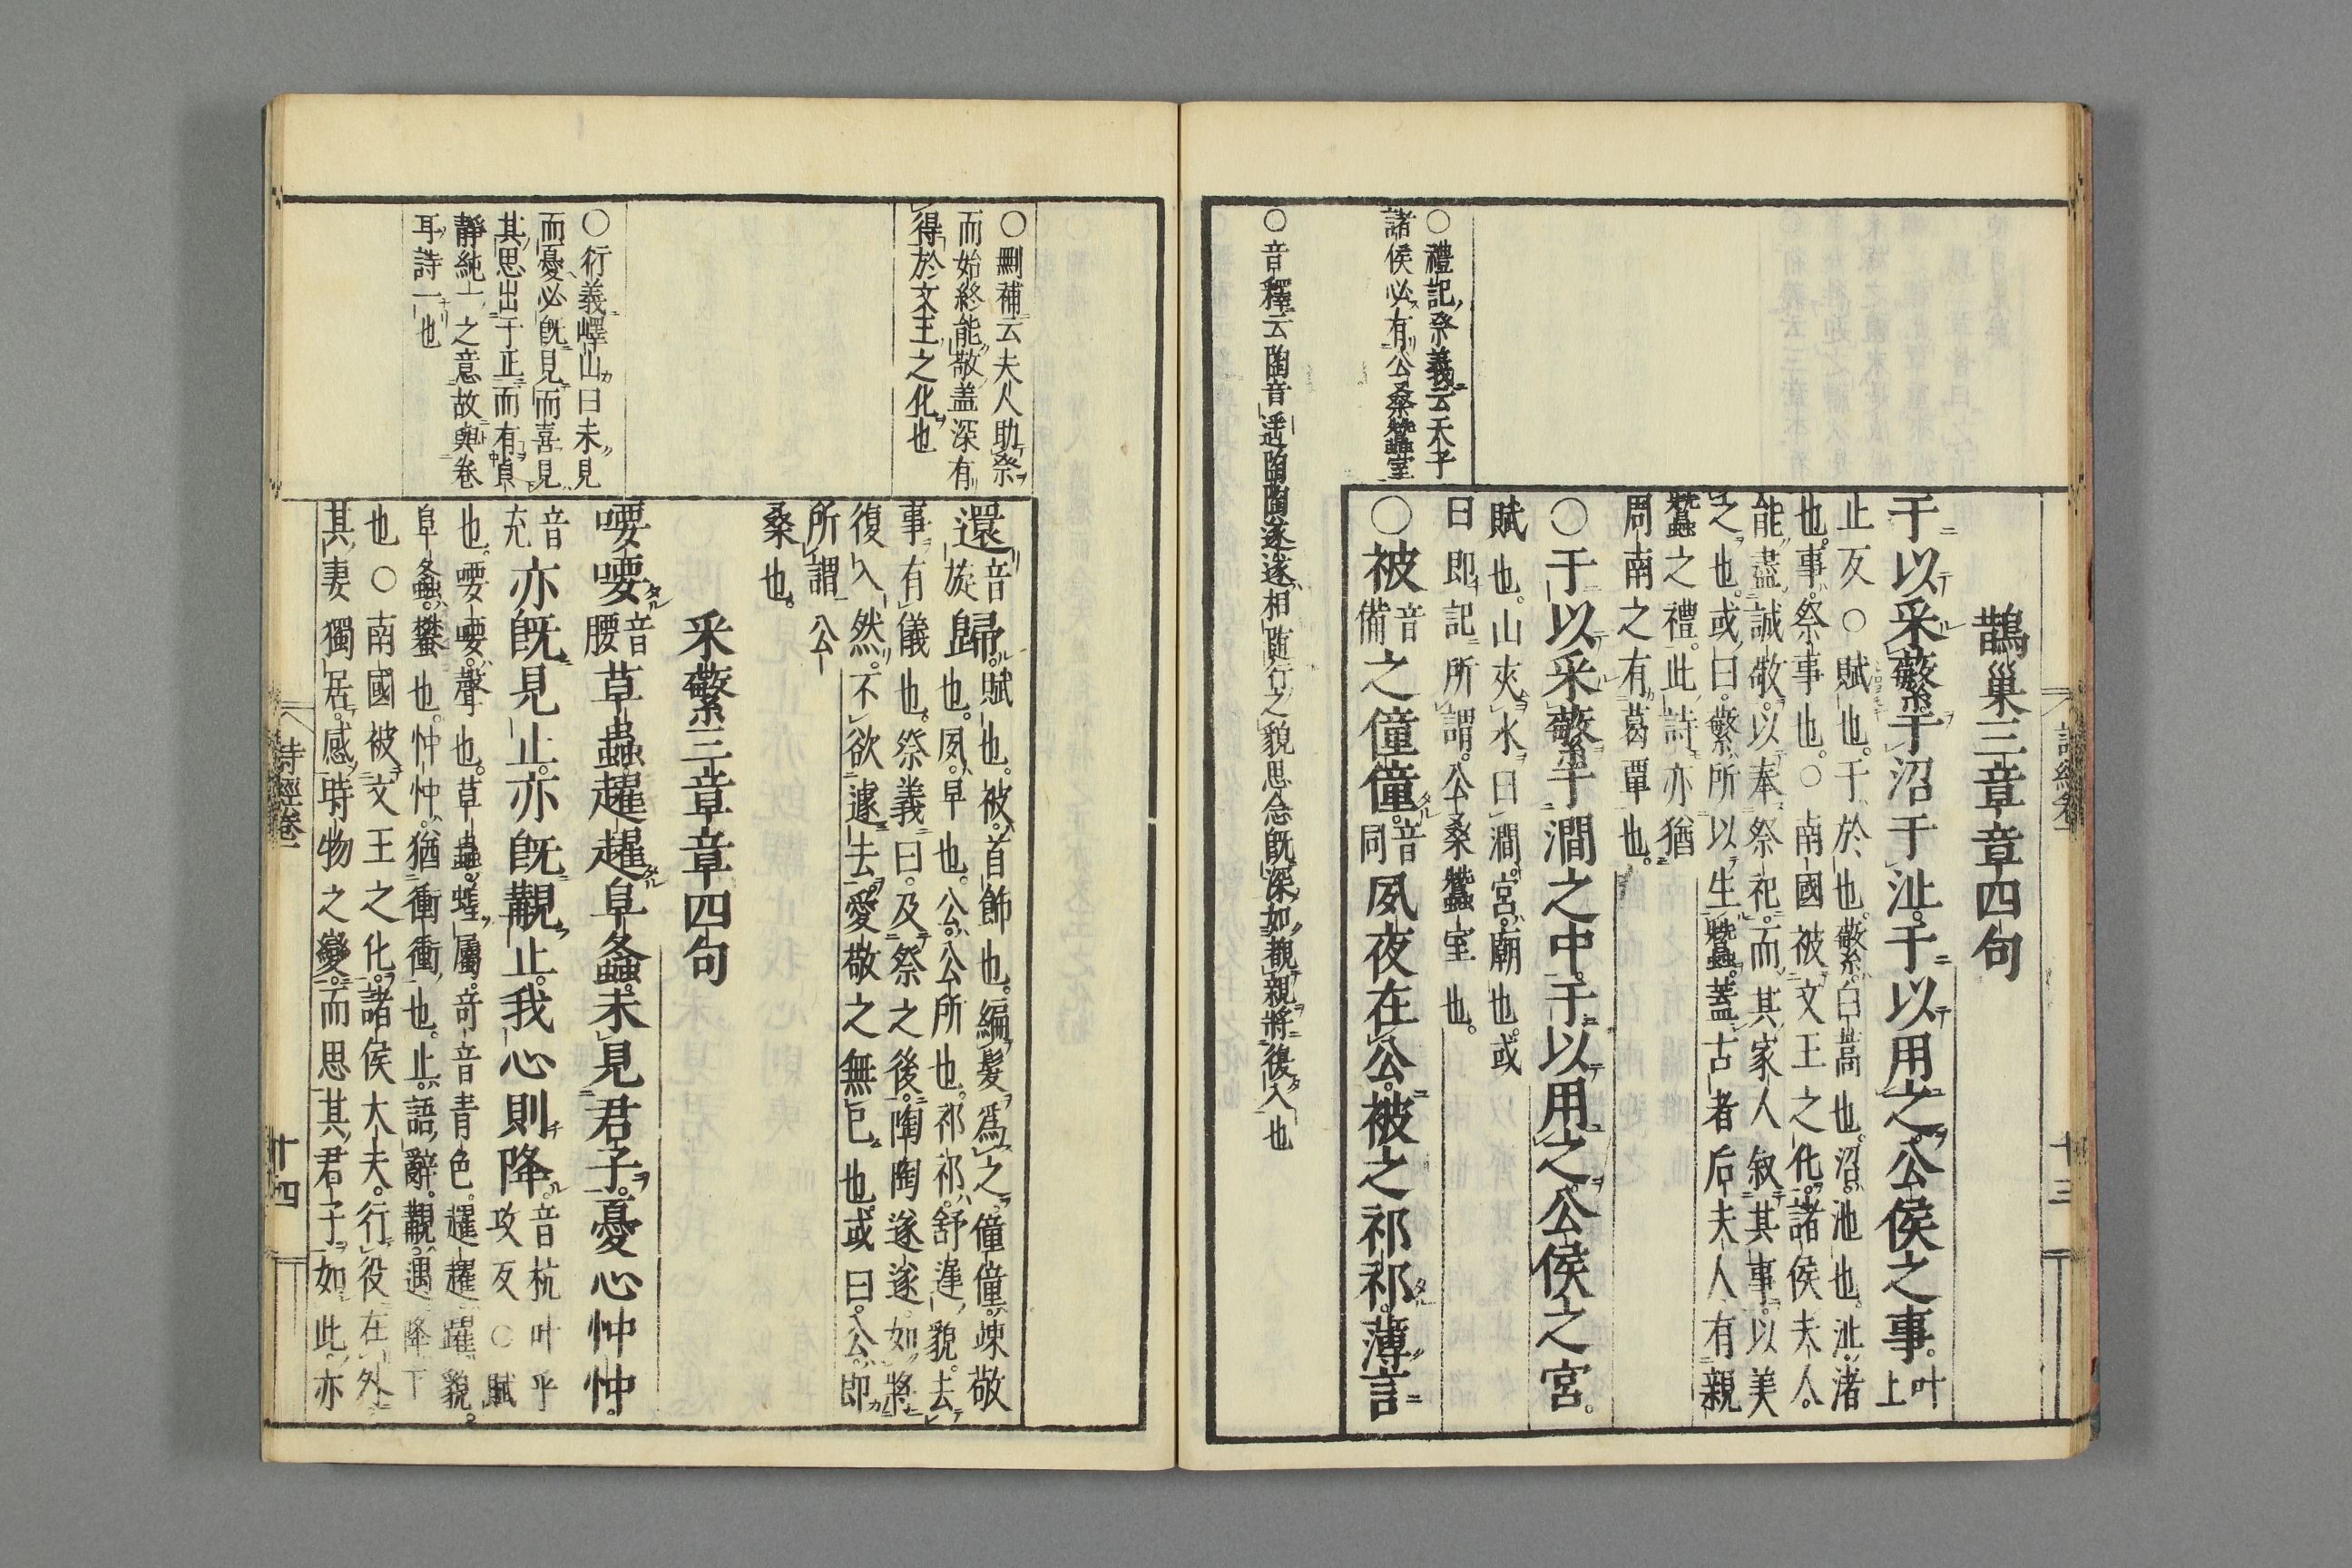 鵲巢三章章四句
于以采蘩于沼于沚于以用之公侯之事叶上
止反○賦也于於也蘩白蒿也沼池也沚渚
也事祭事也○南國被文王之化諸侯夫人
能盡誠敬以奉祭祀而其家人叙其事以美
之也或曰蘩所以生蠶蓋古者后夫人有親
蠶之禮此詩亦猶
周南之有葛覃也
○于以采蘩于澗之中于以用之公侯之宮
賦也山夾水曰澗宮廟也或
曰即記所謂公桑蠶室也
○被音備之僮僮音同夙夜在公被之祁祁薄言
○禮記祭義云天子
諸侯必有公桑蠶室
○音釋云陶音遥陶陶遂遂相随行之貌思念既深如覩親將復入也
詩經卷一
十三
還音旋歸賦也被首飾也編髮爲之僮僮竦敬
也夙早也公公所也祁祁舒遲貌去
事有儀也祭義曰及祭之後陶陶遂遂如將
復入然不欲遽去愛敬之無已也或曰公即
所謂公
桑也
采蘩三章章四句
喓喓音腰草蟲趯趯阜螽未見君子憂心忡忡
音充亦既見止亦既覯止我心則降音杭叶乎攻反○賦
也喓喓聲也草蟲蝗屬奇音青色趯趯躍貌
阜螽蠜也忡忡猶衝衝也止語辭覯遇降下
也○南國被文王之化諸侯大夫行役在外
其妻獨居感時物之變而思其君子如此亦
○刪補云夫人助祭
而始終能敬盖深有
得於文王之化也
○衍義嶧山曰未見
而憂必既見而喜見
其思出于正而有貞
靜純一之意故與卷
耳詩一也
詩經卷一
十四